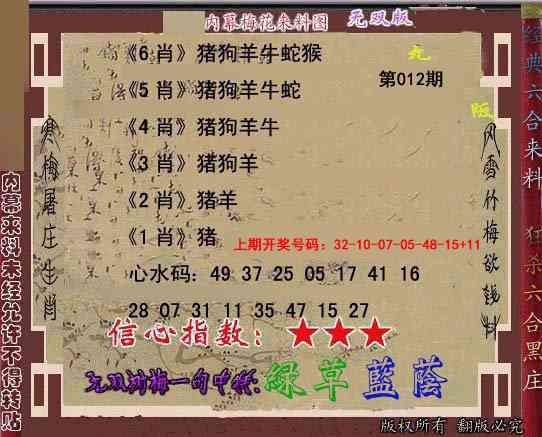 内幕梅花来料图 无双版
《6肖》猪狗羊牛蛇猴
九
第012期
《5肖》猪狗羊牛蛇
阪
《4肖》猪狗羊牛
《3肖》猪狗羊
《2肖》猪羊
《1肖》猪
上期开奖号码：32-10-07-05-48-15+11
心水码：49 37 25 05 17 41 16
28 07 31 11 35 47 15 27
信心指数：★★★
无双刘梅一句中特:绿草蓝荫
版权所有 翻版必究
寒梅屠庄生肖
内幕来料未经允许不得转贴
风雪竹梅欲钱料
经典六合来料
狂杀六合黑庄